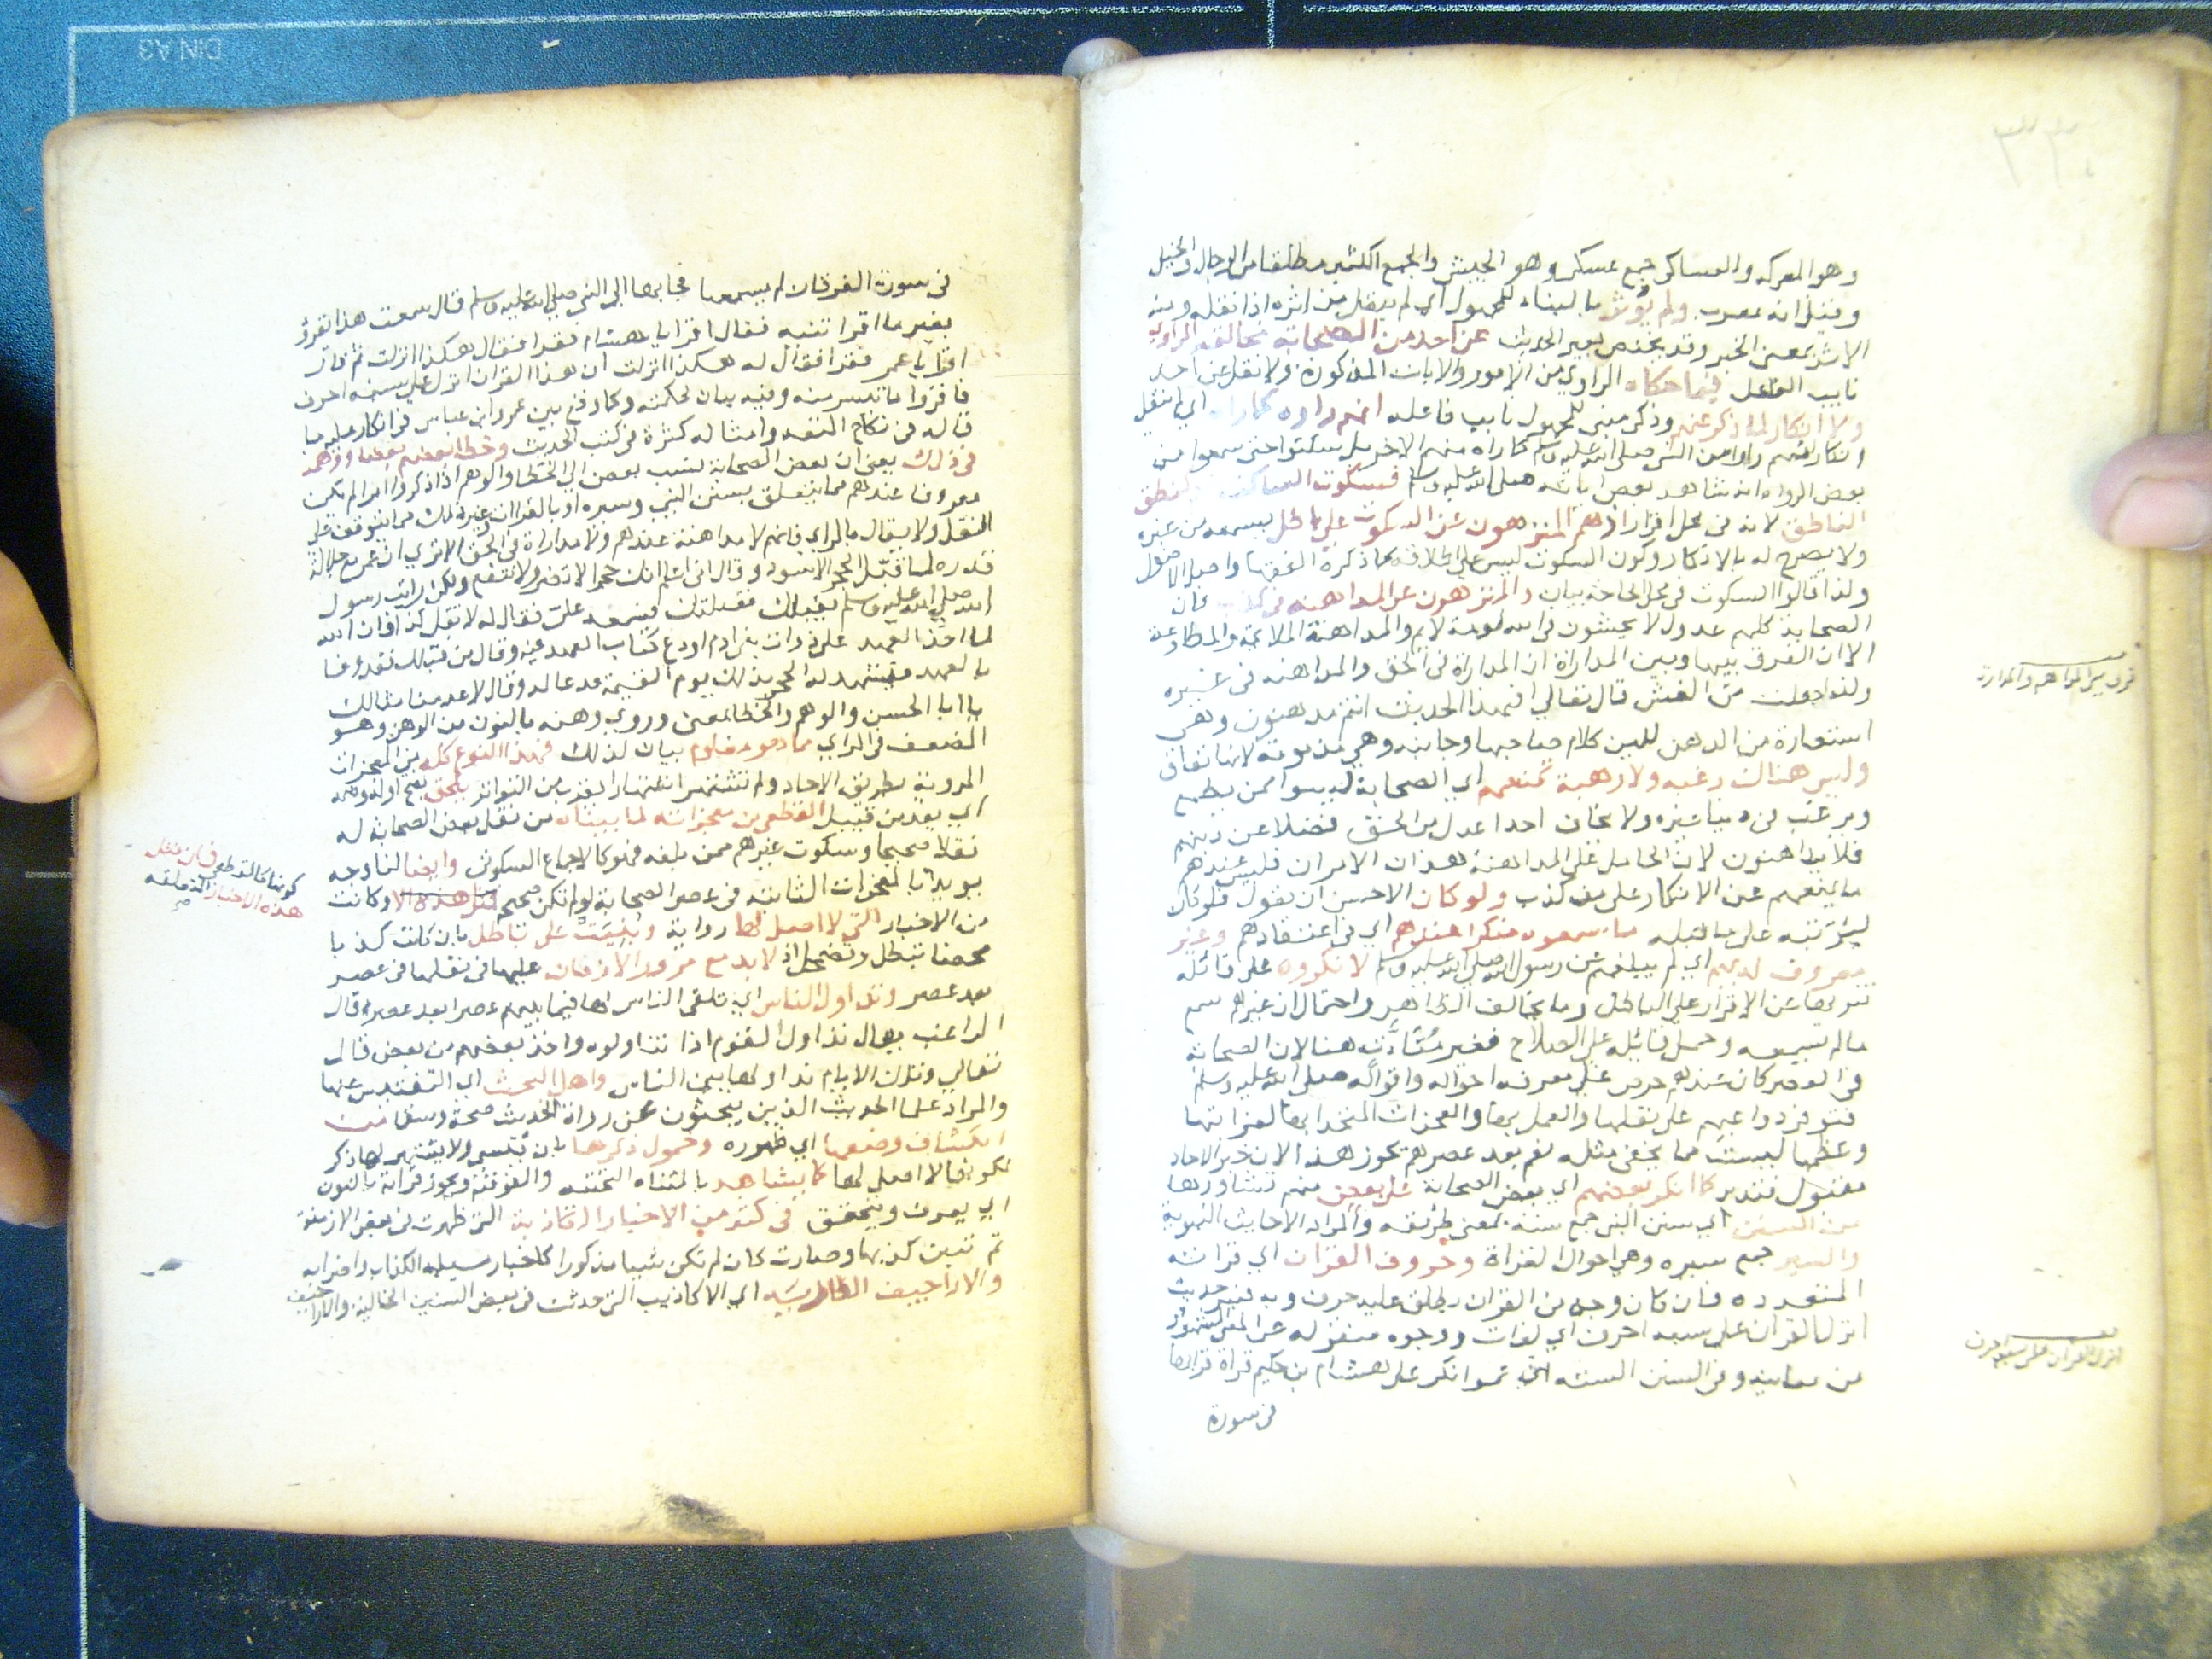 وهو المعركه والعساكر جمع عسكر وهو الجيش والجمع الكثير مطلقا من الرجال والخيل
وقيل انه معرب ولم يؤثر بالبناء للمجهول اي لم ينقل من اثره اذا نقله ومنه
الاثر بمعنى الخبر وقد يختص بغير الحديث عن احد من الصحابة مخالفة الراوي
نايب الفاعل فيما حكاه الراوي من الامور والايات المذكورة ولا نقل عن احد
ولا انكار لما ذكر عنهم وذكر مبنى للمجهول نايب فاعله انهم راوه كما راه اي لم ينقل
انكار انهم راوا من النبي صلى الله عليه وسلم كما راه منهم الاخر بل سكتوا حتى سمعوا من
بعض الرواه انه شاهد بعض اياته صلى الله عليه وسلم فسكوت الساكت منهم كنطق
الناطق لانه في محل اقرار اذ هم المنزهون عن السكوت على باطل يسمعه من غيره
ولا يصرح له بالانكار وكون السكوت ليس على اطلاقه كما ذكره الفقها واهل الاصول
ولذا قالوا السكوت في محل الحاجة بيان والمنزهون عن المداهنه في كذب فان
الصحابة كلهم عدول لا يخشون في الله لومة لائم والمداهنة الملاينة والمطاوعة
الا ان الفرق بينها وبين المداراة ان المداراة في الحق والمداهنه في غيره
ولذا جعلت من الغش قال تعالى افبهذا الحديث انتم مدهنون وهي
استعارة من الدهن للين كلام صاحبها وجانبه وهي مذمومة لانها نفاق
وليس هناك رغبه ولا رهبة تمنعهم اي الصحابة ليسوا ممن يطمع
ويرغب في دنيا غيره ولا يخاف احدا عدل من الحق فضلا عن دينهم
فلا يداهنون لان الحامل على المداهنة هذان الامران فليس عندهم
ما يمنعهم عن الانكار على من كذب ولو كان الاحسن ان يقول فلو كان
لترتبه على ما قبله ما سمعوه منكرا عندهم اي في اعتقادهم وغير
معروف لديهم اي لم يبلغهم عن رسول الله صلى الله عليه وسلم لانكروه على قائله
تنزيها عن الاقرار على الباطل وما يخالف الظاهر واحتمال ان غيرهم سمع
ما لم يسمعه وحمل قائله على الصلاح فغير متأت هنا لان الصحابة
في العصر كان عندهم حرص على معرفة احواله واقواله صلى الله عليه وسلم
فتوفر دواعيهم على نقلها والعمل بها والمعجزات المتحدا بها لغرابتها
وعظمها ليست مما يخفى مثله نعم بعد عصرهم يجوز هذا لان خبر الاحاد
مقبول فتدبر كما انكر بعضهم اي بعض الصحابة على بعض منهم اشيا رواها
من السنن اي سنن النبي جمع سنة بمعنى طريقه والمراد الاحاديث النبوية
والسير جمع سيره وهي احوال الغزاة وحروف القران اي قراته
المتعدده فان كان وجه من القران يطلق عليه حرف وبه فسر حديث
انزل القران على سبعه احرف اي لغات ووجوه منقوله عن المشهور
من معانيه وفي السنن السته ان عمر انكر على هشام بن حكيم قراة قراها
في سورة
فرق بين المداهنه والمداراة
انزل القران على سبعه احرف
في سورة الفرقان لم يسمعها فجا بها الى النبي صلى الله عليه وسلم قال سمعت هذا يقرؤ
بغير ما اقراتنيه فقال اقرا يا هشام فقرا فقال هكذا انزلت ثم قال
اقرا يا عمر فقرا فقال له هكذا انزلت ان هذا القران انزل على سبعه احرف
فاقروا ما تيسر منه وفيه بيان لحكمته وكما وقع بين عمر وابن عباس في انكار عليه ما
قاله في نكاح المتعه وامثاله كثرة في كتب الحديث وخطا بعضهم بعضا ووهمه
في ذلك يعني ان بعض الصحابة نسب بعض الى الخطا والوهم اذا ذكروا امرا لم يكن
معروفا عندهم مما يتعلق بسنن النبي وسيره او بالقران وغير ذلك مما يتوقف على
النقل ولا يقال بالراي فانهم لا مداهنة عندهم ولا مداراة في الحق الا ترى ان عمر مع جلالة
قدره لما قبل الحجر الاسود وقال اني اعلم انك حجر لا تضر ولا تنفع ولكن رايت رسول
الله صلى الله عليه وسلم يقبلك فقبلتك فسمعه على فقال له لا تقل كذا فان الله
لما اخذ العهد على ذرات بني ادم اودع كتاب العهد فيه وقال من قبلك فقد وفا
بالعهد فيشهد له الحجر بذلك يوم القيمة فدعا له وقال لا عدمنا مثالك
يا ابا الحسن والوهم والخطا بمعنى وروي وهنه بالنون من الوهن وهو
الضعف في الراي مما هو معلوم بيان لذلك فهذا النوع كله من المعجزات
المروية بطريق الاحاد ولم تشتهر اشتهارا يقرب من التواتر يلحق بفتح اوله وضمه
اي يعد من قبيل القطعي من معجزاته لما بيناه من نقل بعض الصحابة له
نقلا صحيحا وسكوت غيرهم ممن بلغه فهو كالاجماع السكوتي وايضا لنا وجه
يويد ان المعجزات الثابته في عصر الصحابة لو لم تكن صحيحه مثل هذه الا وكانت
من الاخبار التي لا اصل لها رواية وبنيت على باطل بان كانت كذبا
محضا تبطل وتضمحل اذ لا بد مع مرور الازمان عليها في نقلها في عصر
بعد عصر وتداول الناس اي تلقي الناس لها فيما بينهم عصرا بعد عصر وقال
الراغب يقال تداول القوم اذا تناولوه واخذ بعضهم من بعض قال
تعالى وتلك الايام نداولها بين الناس واهل البحث اي التفتيش عنها
والمراد علما الحديث الذين يبحثون عن رواة الحديث صحة وسقما من
انكشاف وضعها اي ظهوره وخمول ذكرها بان ينسى ولا يشتهر لها ذكر
لكونها لا اصل لها كما يشاهد بالمثناه التحتيه والفوقية ويجوز قراته بالنون
اي يعرف ويتحقق في كثير من الاخبار الكاذبة التي ظهرت في بعض الازمنة
ثم تبين كذبها وصارت كان لم تكن شيئا مذكورا كاخبار مسيلمه الكذاب وافترايه
والاراجيف الطاريه اي الاكاذيب التي حدثت في بعض السنين الخالية والاراجيف
كونها كالقطعي فان نقل
هذه الاخبار
صح